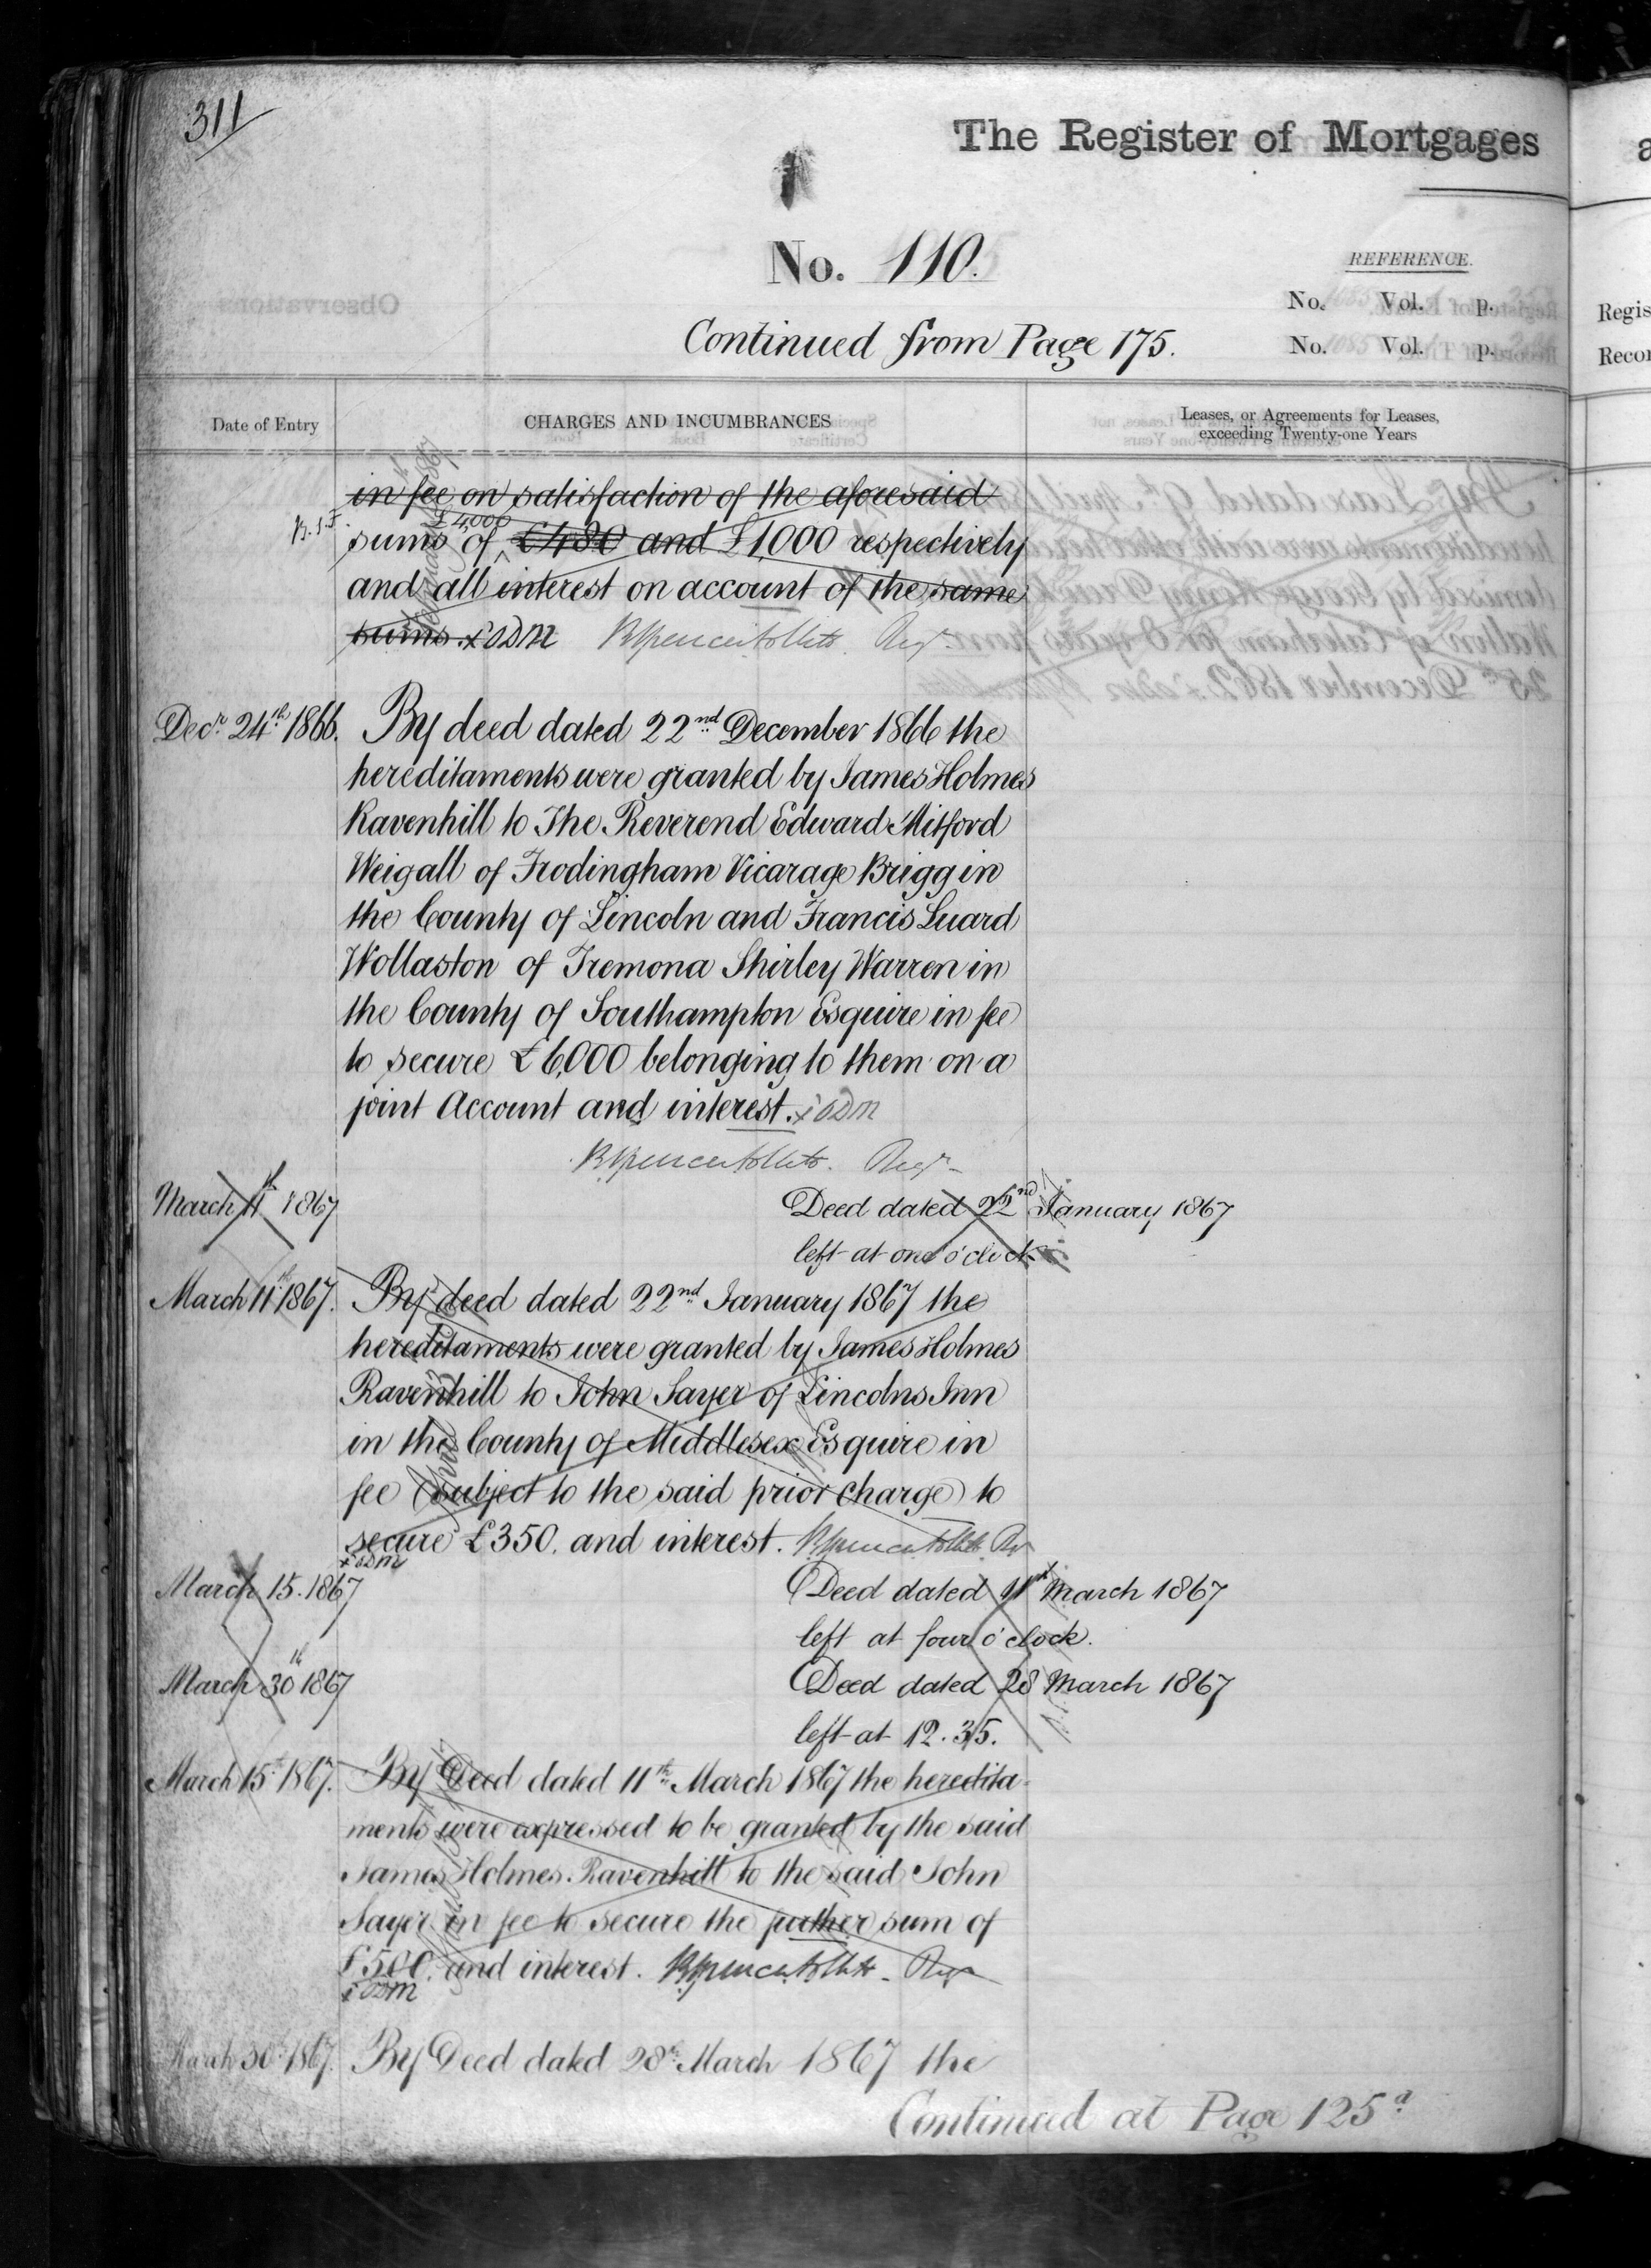 311
The Register of Mortgages
No. 110.
REFERENCE.
No. Vol. p.
No. Vol. p.
Continued from Page 175.
Date of Entry
CHARGES AND INCUMBRANCES
Leases, or Agreements for Leases,
exceeding Twenty-one Years
in fee on satisfaction of the aforesaid
£4,000
sums of £480 and £1,000 respectively
and all interest on account of the same
sums.
Decr. 24th 1866. By deed dated 22nd December 1866 the
hereditaments were granted by James Holmes
Ravenhill to The Reverend Edward Mitford
Weigall of Frodingham Vicarage Brigg in
the County of Lincoln and Francis Luard
Wollaston of Tremona Shirley Warren in
the County of Southampton Esquire in fee
to secure £6,000 belonging to them on a
joint Account and interest.
March 11th 1867 Deed dated 22nd January 1867
left at one o'clock
March 11th 1867. By deed dated 22nd January 1867 the
hereditaments were granted by James Holmes
Ravenhill to John Sayer of Lincolns Inn
in the County of Middlesex Esquire in
fee (subject to the said prior charge) to
secure £350. and interest.
March 15. 1867 Deed dated 11th March 1867
left at four o'clock.
March 30th 1867 Deed dated 28 March 1867
left at 12.35.
March 15th 1867. By Deed dated 11th March 1867 the heredita-
ments were expressed to be granted by the said
James Holmes Ravenhill to the said John
Sayer in fee to secure the further sum of
£500. and interest.
March 30th 1867. By Deed dated 28th March 1867 the
Continued at Page 125a